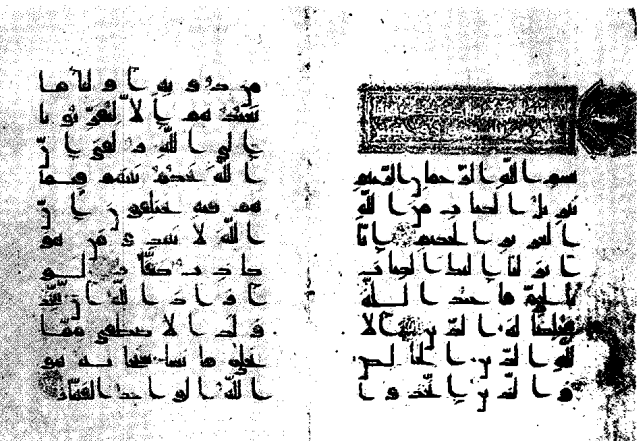 بسم الله الرحمن الرحيم
تنزيل الكتب من الله
العزيز الحكيم انا
انزلنا اليك الكتب
بالحق فاعبد الله
مخلصا له الدين الا
لله الدين الخالص
والذين اتخذوا
من دونه اوليا ما
نعبدهم الا ليقربونا
الى الله زلفى ان
الله يحكم بينهم فيما
هم فيه يختلفون ان
الله لا يهدي من هو
كاذب كفار لو
اراد الله ان يتخذ
ولدا لاصطفى مما
يخلق ما يشا سبحنه هو
الله الواحد القهار